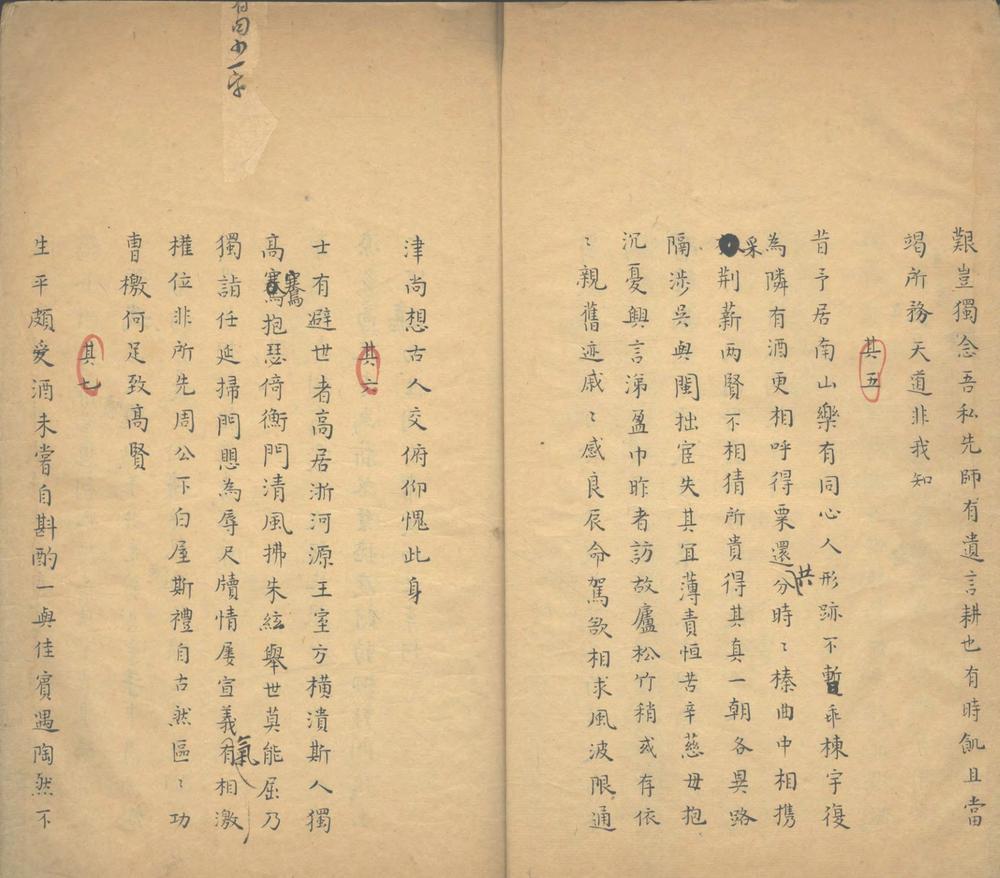 艱豈獨念吾私先師有遺言耕也有時飢且當
竭所務天道非我知
其五
昔予居南山樂有同心人形跡不暫乖棟宇復
為隣有酒更相呼得粟還共分時〻榛曲中相携
采荆薪兩賢不相猜所貴得其真一朝各異路
隔涉吳與閩拙宦失其宜薄責恒苦辛慈母抱
沉憂興言涕盈巾昨者訪故廬松竹稍或存依
〻親舊迹戚〻感良辰命駕欲相求風波限通
津尚想古人交俯仰愧此身
其六
士有避世者高居浙河源王室方橫潰斯人獨
高騫抱瑟倚衡門清風拂朱絃舉世莫能屈乃
獨詣任延掃門愳為辱尺牘情屢宣義有氣相激
權位非所先周公下白屋斯禮自古然區〻功
曹檄何足致高賢
其七
生平頗愛酒未嘗自斟酌一與佳賓遇陶然不
少一字